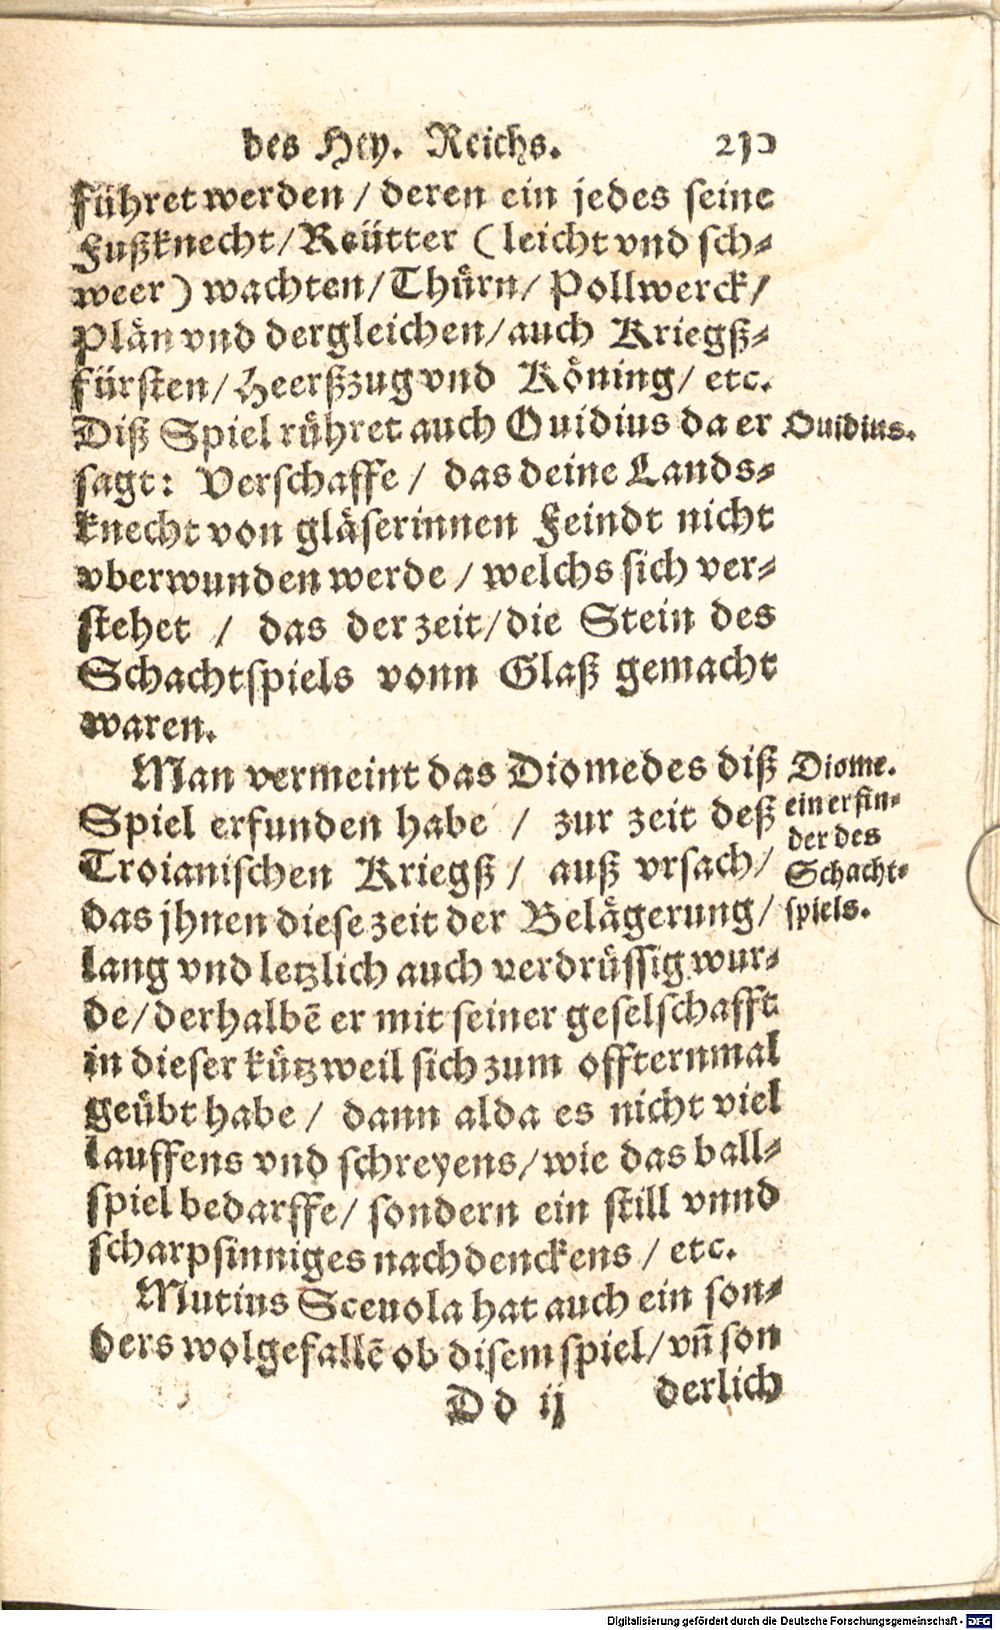 des Hey. Reichs.
führet werden / deren ein jedes seine
Fußknecht/ Reütter (leicht vnd sch-
weer) wachten/ Thürn/ Pollwerck/
Plän vnd dergleichen/ auch Kriegß-
fürsten/ Heerßzug vnd Köning/ etc.
Diß Spiel rühret auch Ouidius da er
Ouidius.
sagt: Verschaffe / das deine Lands-
knecht von gläserinnen Feindt nicht
vberwunden werde / welchs sich ver-
stehet / das der zeit/ die Stein des
Schachtspiels vonn Glaß gemacht
waren.
Man vermeint das Diomedes diß
Spiel erfunden habe / zur zeit deß
Troianischen Kriegß / auß vrsach/
das jhnen diese zeit der Belägerung/
Diome.
ein erfin-
der des
Schacht-
spiels.
lang vnd letzlich auch verdrüssig wur-
de/ derhalbē er mit seiner geselschafft
in dieser kützweil sich zum offternmal
geübt habe / dann alda es nicht viel
lauffens vnd schreyens/ wie das ball-
spiel bedarffe/ sondern ein still vnnd
scharpsinniges nachdenckens / etc.
Mutius Sceuola hat auch ein son-
ders wolgefallē ob disem spiel/ vn̄ son
D d ij
derlich
Digitalisierung gefördert durch die Deutsche Forschungsgemeinschaft - DFG